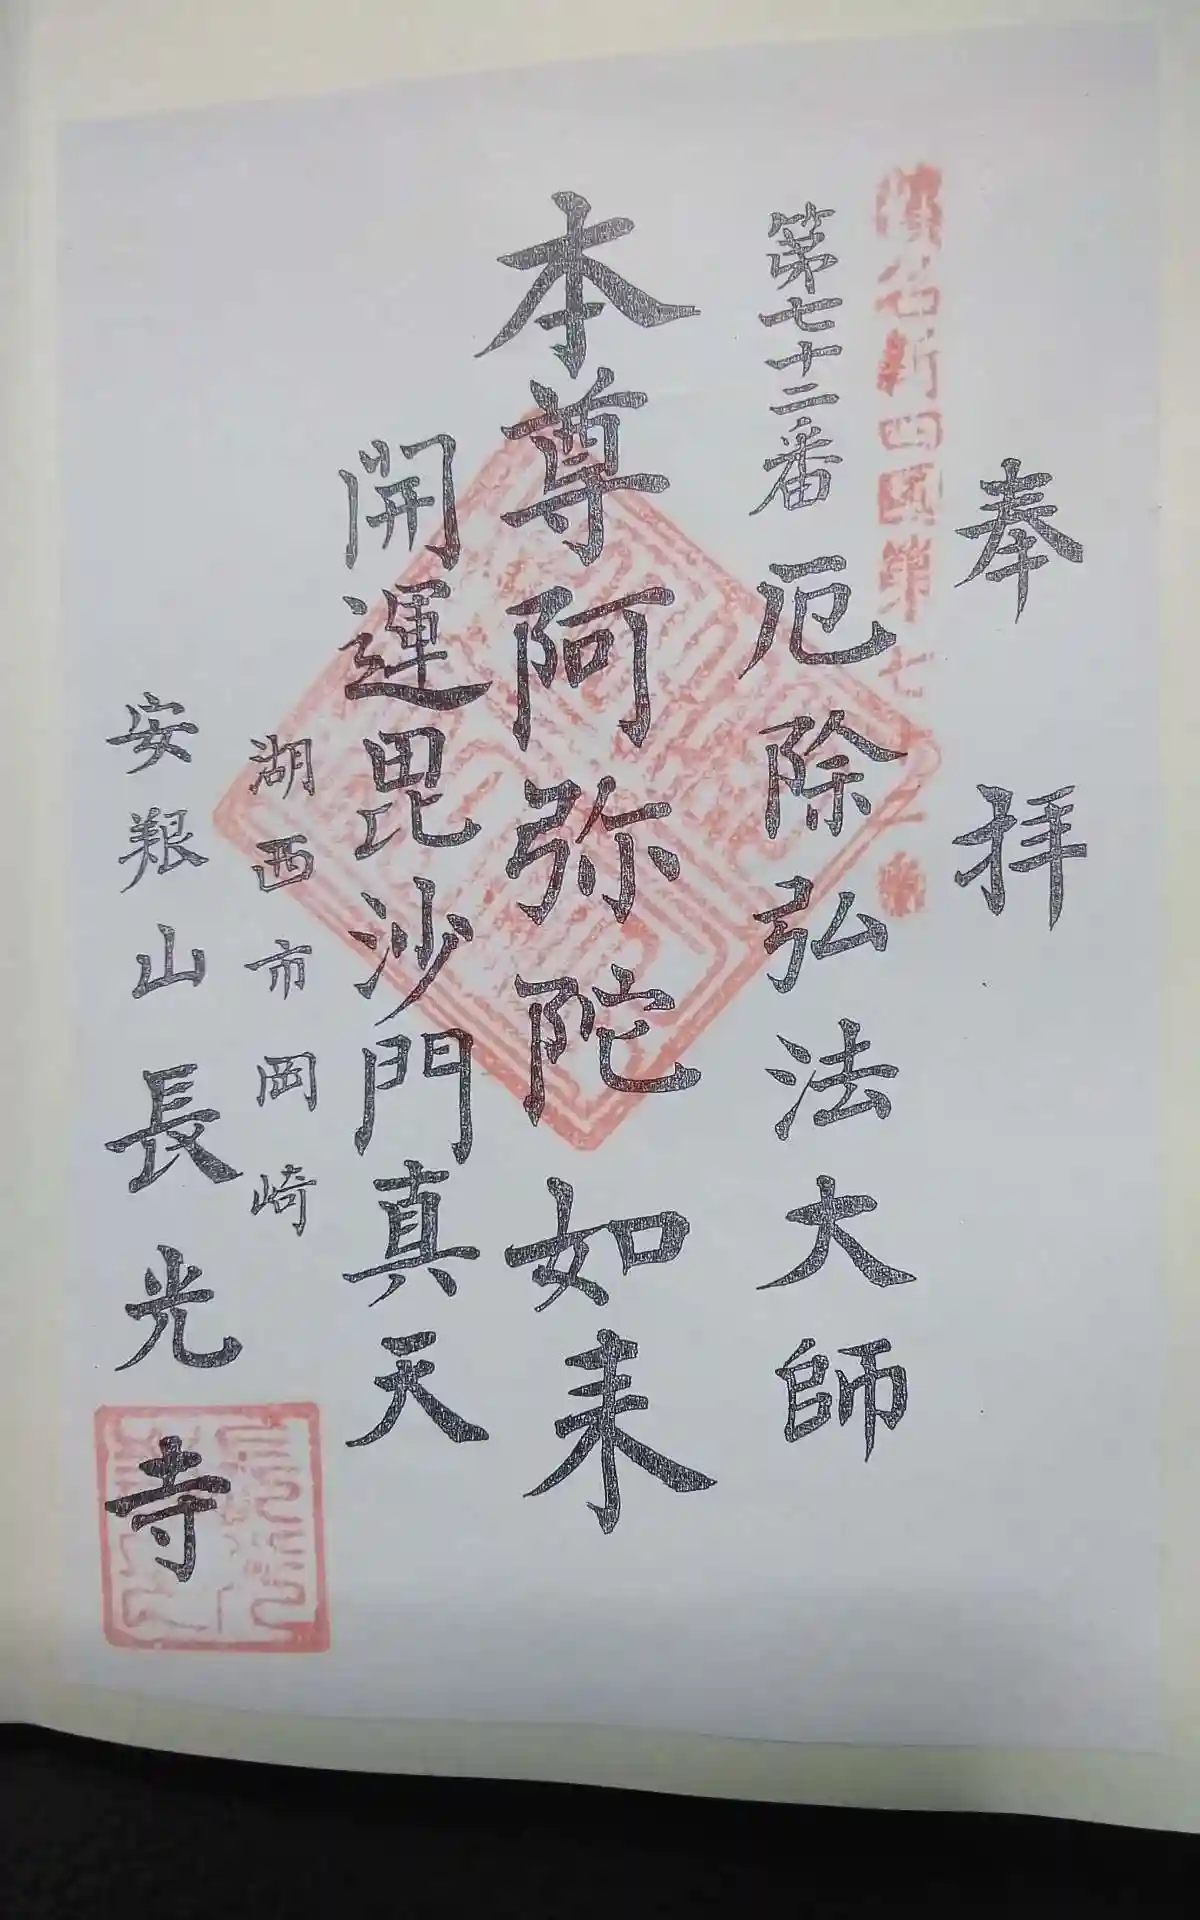 奉拝
濱名新四國第七十二番
第七十二番 厄除弘法大師
本尊阿弥陀如来
開運毘沙門真天
湖西市岡崎
安艱山長光寺